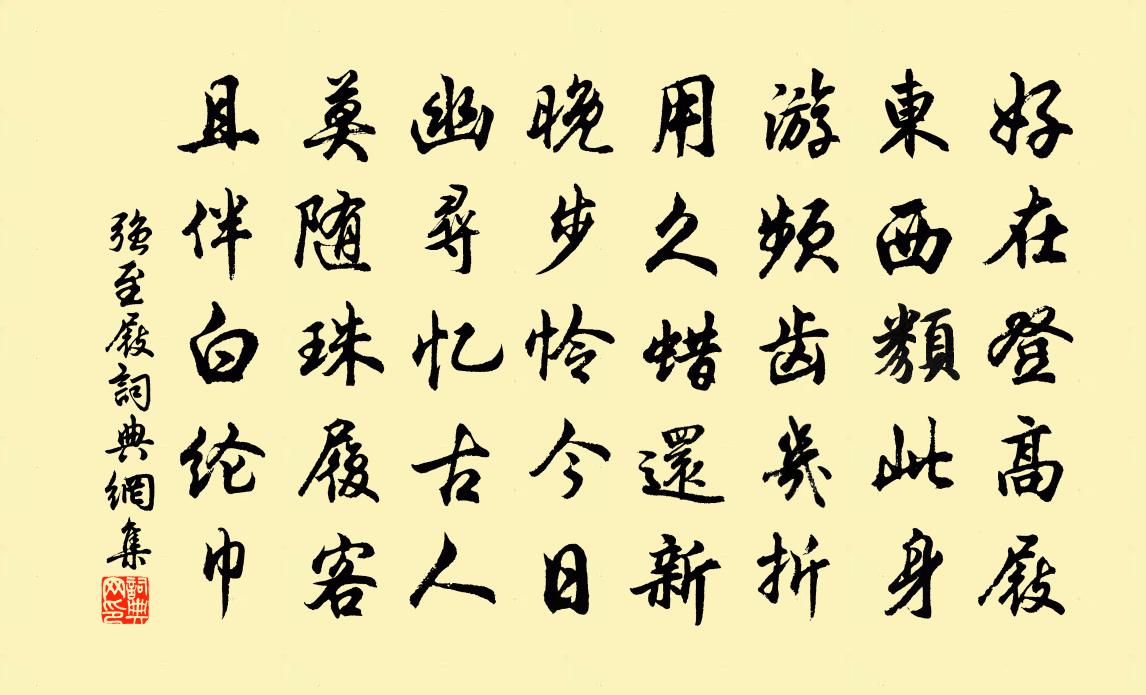 好在登高屐
東西類此身
游频齿幾折
用久蜡還新
晚步怜今日
幽尋忆古人
莫随珠履客
且伴白纶巾
強至屐詞典網集
詞典網印